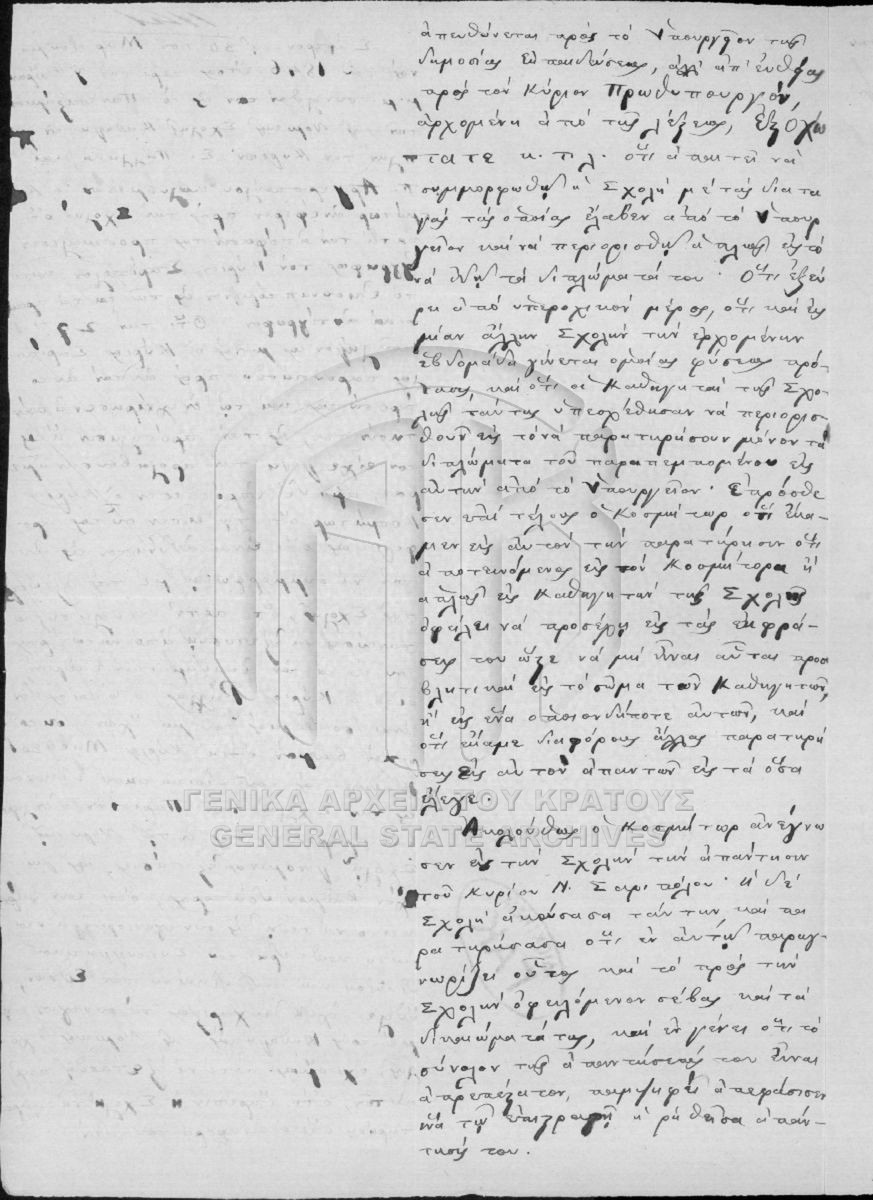 ἀπευθύνεται πρός τό Ὑπουργεῖον τῆς
δημοσίας Ἐκπαιδεύσεως, ἀλλ' ἀπ' εὐθείας
πρός τον Κύριον Πρωθυπουργόν,
ἀρχομένη ἀπό τῆς λέξεως, Ἐξοχώ
τατε κ.τ.λ. ὅτι ἀπαιτεῖ νά
συμμορφωθῇ ἡ Σχολή μέ τάς διατα
γάς τάς ὁποίας ἔλαβεν ἀπό τό Ὑπουρ
γεῖον καί νά περιορισθῇ ἁπλῶς εἰς τό
νά ἰδῇ τά διπλώματά του. Ὅτι ἐξεύ
ρει ἀπό ὑπεροχικόν μέρος, ὅτι καί εἰς
μίαν ἄλλην Σχολήν τήν ἐρχομένην
ἑβδομάδα γίνεται ὁμοίας φύσεως πρό-
τασις, καί ὅτι οἱ Καθηγηταί τῆς Σχο-
λῆς ταύτης ὑπεσχέθησαν νά περιορισ-
θοῦν εἰς τό νά παρατηρήσουν μόνον τά
διπλώματα τοῦ παραπεμπομένου εἰς
αὐτήν ἀπό τό Ὑπουργεῖον. Ἐπρόσθε
σεν ἐπί τέλους ὁ Κοσμήτωρ ὅτι ἔκα-
μεν εἰς αὐτόν τήν παρατήρησιν ὅτι
ἀποτεινόμενος εἰς τόν Κοσμήτορα ἤ
ἁπλῶς εἰς Καθηγητήν τῆς Σχολῆς
ὀφείλει νά προσέχῃ εἰς τάς ἐκφρά-
σεις του ὥστε νά μή εἶναι αὗται προσ
βλητικαί εἰς τό σῶμα τῶν Καθηγητῶν,
ἤ εἰς ἕνα ὁποιονδήποτε αὐτῶν, καί
ὅτι ἔκαμε διαφόρους ἄλλας παρατηρή
σεις εἰς αὐτόν ἀπαντῶν εἰς τά ὅσα
ἔλεγε.
Ἀκολούθως ὁ Κοσμήτωρ ἀνέγνω
σεν εἰς τήν Σχολήν τήν ἀπάντησιν
τοῦ Κυρίου Ν. Σαριπόλου. Ἡ δέ
Σχολή ἀκούσασα ταύτην καί πα
ρατηρήσασα ὅτι ἐν αὐτῇ παραγ-
νωρίζει οὗτος καί τό πρός τήν
Σχολήν ὀφειλόμενον σέβας καί τά
δικαιώματά της, καί ἐν γένει ὅτι τό
σύνολον τῆς ἀπαντήσεώς του εἶναι
ἀπρεπέστατον, παμψηφεί ἀπεφάσισεν
ἵνα τῷ ἐπιστραφῇ ἡ ρηθεῖσα ἀπάν-
τησίς του.
ΓΕΝΙΚΑ ΑΡΧΕΙΑ ΤΟΥ ΚΡΑΤΟΥΣ
GENERAL STATE ARCHIVES